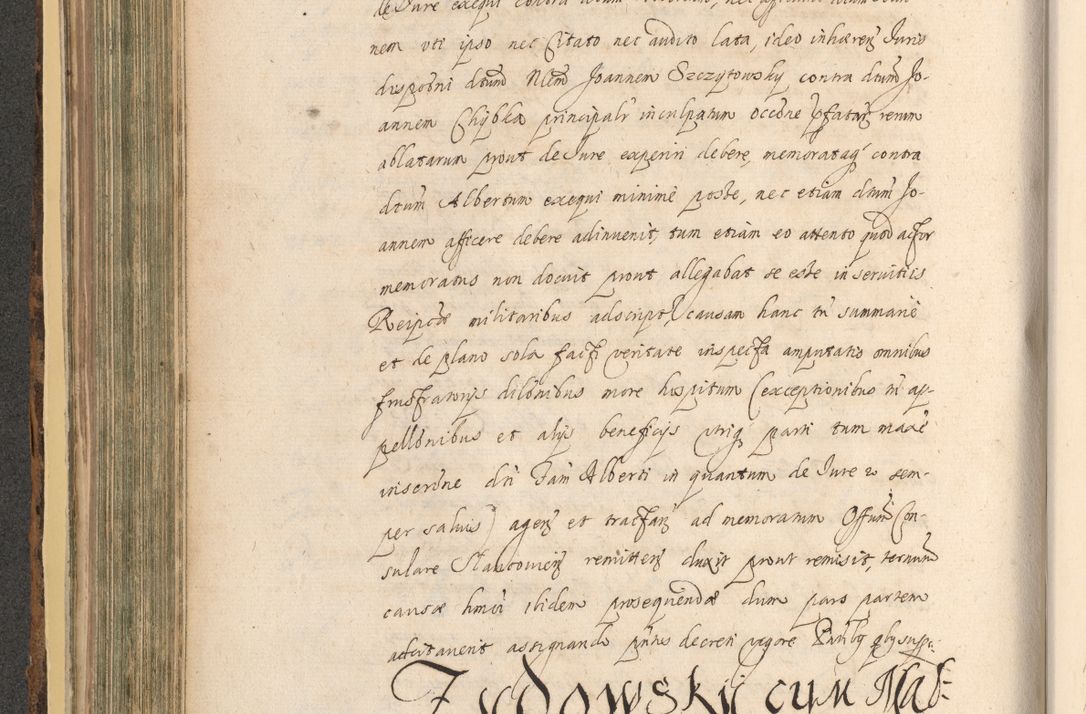 de Jure exequi contra
nem uti ipso nec Citato nec audito lata, ideo inhæreñ Juris
disposñi dctum Nlem Joannem Szczytowsky contra dctum Jo-
annem Chybka principalr inculpatum occõne pfatarz rerum
ablatarum prout de Jure experiri debere, memoratq contra
dctum Albertum exequi minime posse, nec etiam dctum Jo-
annem afficere debere adinvenit, tum etiam eo attento quod actor
memoratus non docuit prout allegabat se esse in servitiis
Reipcæ militaribus adscript, causam hanc tñ summarie
et de plano sola facti veritate inspecta amputatis omnibus
frustratorijs dilõnibus more hospitum (exceptionibus tñ ap-
pellõnibus et alijs beneficijs utriq parti tum maæ
inscrõne dñi Alberti in quantum de Jure e sem-
per salvis) ageñ et tractañ ad memoratum Offum Con-
sulare remitteñ duxit prout remisit, termum
causæ hmõi ibidem prosequendæ dum pars partem
adcitaverit assignando pñtis decreti vigore
Zydowskij cum Mad=